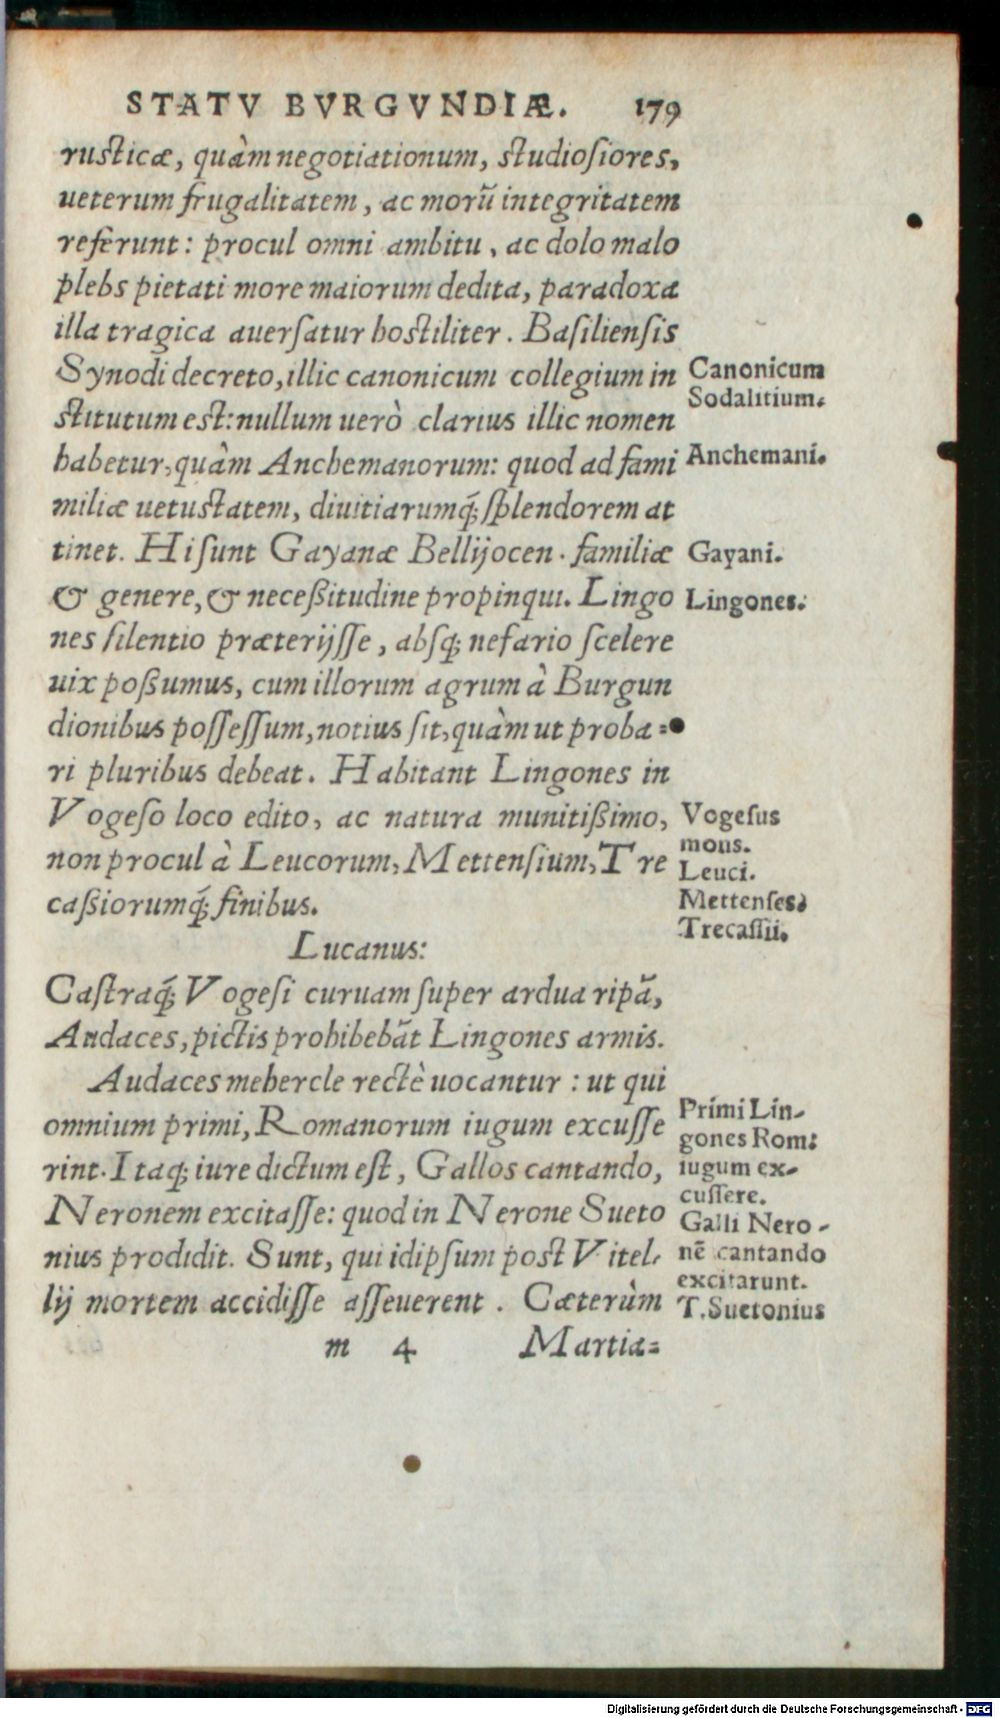 STATV BVRGVNDIÆ. 179
rusticæ, quàm negotiationum, studiosiores,
ueterum frugalitatem, ac morũ integritatem
referunt: procul omni ambitu, ac dolo malo
plebs pietati more maiorum dedita, paradoxa
illa tragica auerſatur hostiliter. Baſilienſis
Synodi decreto, illic canonicum collegium in
stitutum est: nullum uerò clarius illic nomen
habetur, quàm Anchemanorum: quod ad fami
miliæ uetustatem, diuitiarumq́; ſplendorem at
tinet. Hi ſunt Gayanæ Bellijocen. familiæ
& genere, & neceßitudine propinqui. Lingo
nes ſilentio præterijſſe, abſq; nefario ſcelere
uix poßumus, cum illorum agrum à Burgun
dionibus poſſeſſum, notius ſit, quàm ut proba=
ri pluribus debeat. Habitant Lingones in
Vogeſo loco edito, ac natura munitißimo,
non procul à Leucorum, Mettenſium, Tre
caßiorumq́; finibus.
Lucanus:
Caſtraq́; Vogeſi curuam ſuper ardua ripã,
Audaces, pictis prohibebãt Lingones armis.
Audaces mehercle rectè uocantur: ut qui
omnium primi, Romanorum iugum excuſſe
rint. Itaq; iure dictum eſt, Gallos cantando,
Neronem excitaſſe: quod in Nerone Sueto
nius prodidit. Sunt, qui idipſum post Vitel-
lij mortem accidiſſe aſſeuerent. Cæterùm
m 4 Martia=
Canonicum
Sodalitium.
Anchemani.
Gayani.
Lingones.
Vogeſus
mons.
Leuci.
Mettenſes.
Trecaſſii.
Primi Lin-
gones Rom:
iugum ex-
cuſſere.
Galli Nero-
nẽ cantando
excitarunt.
T. Suetonius
Digitalisierung gefördert durch die Deutsche Forschungsgemeinschaft - DFG